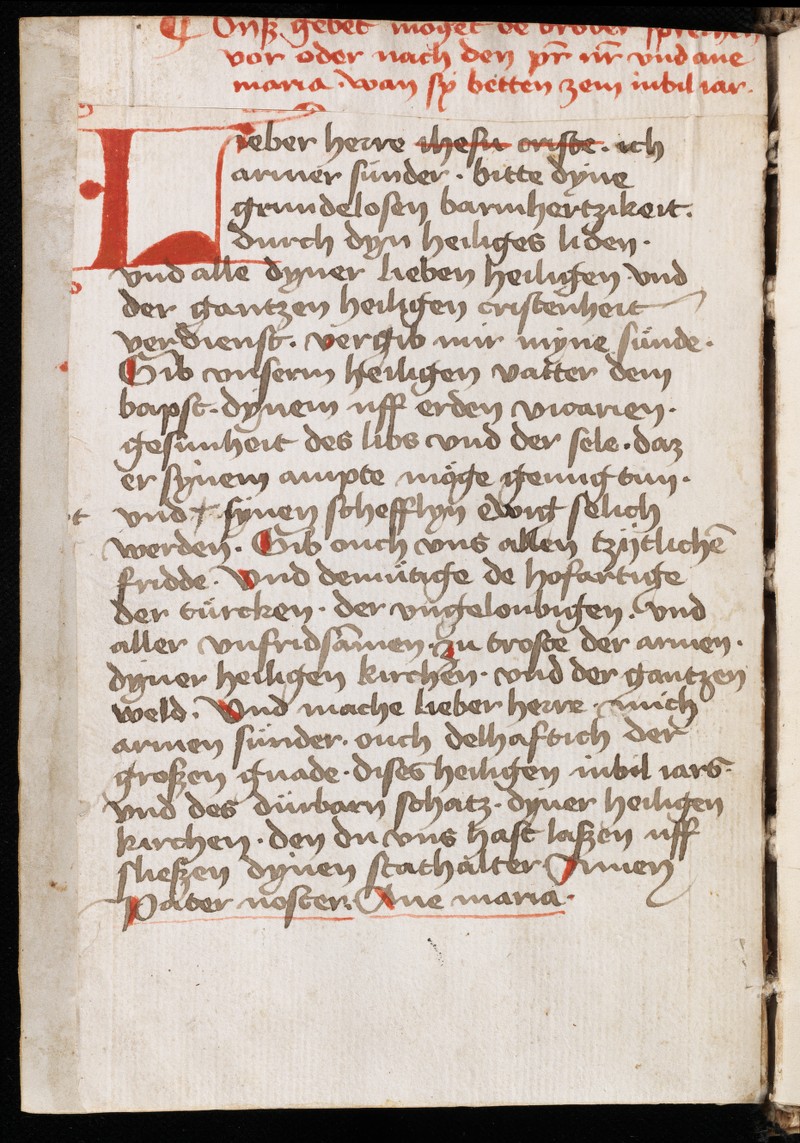 ¶ Diß gebet moget de brober sprechen
vor oder nach den pr̄ nr̄ vnd aue
maria · wan sy betten zem iubil iar.
Lieber herre ihesu criste · ich
armer sünder · bitte dyne
grundelosen barmhertzikeit.
durch dyn heiliges liden ·
vnd alle dyner lieben heiligen vnd
der gantzen heiligen cristenheit
verdienst · vergib mir myne sünde ·
Gib vnserm heiligen vatter dem
bapst · dynem uff erden vicarien ·
gesunheit des libs vnd der sele · daz
er synem ampte möge genug tun ·
vnd synen schefflyn ewig selich
werden · Gib ouch vns allen tzytlichē
fridde · Vnd demütige de hofartige
der türcken · der vngeloubigen · vnd
aller vnfridsamen · zu troste der armen ·
dyner heiligen kirchen · vnd der gantzen
weld · Vnd mache lieber herre · mich
armen sünder · ouch delhaftich der
großen gnade · dises heiligen iubil iars ·
vnd des dürbarn schatz · dyner heiligen
kirchen · den du vns hast laßen uff
sließen dynen stathalter Amen
Pater noster · Aue maria ·